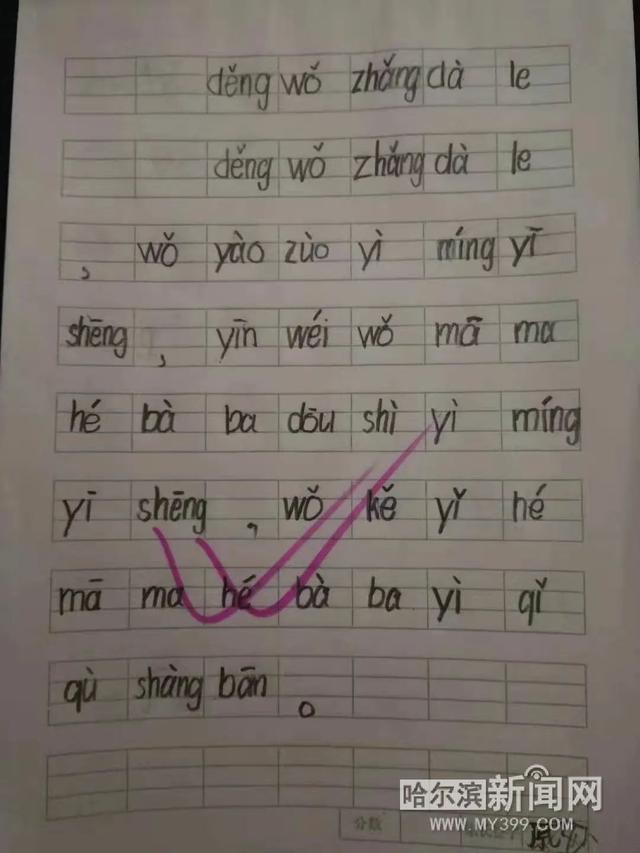 děng wǒ zhǎng dà le
děng wǒ zhǎng dà le
, wǒ yào zùo yì míng yī
shēng , yīn wéi wǒ mā ma
hé bà ba dōu shì yì míng
yī shēng , wǒ kě yǐ hé
mā ma hé bà ba yì qǐ
qù shàng bān 。
哈尔滨新闻网
分数
WWW.MY399.COM